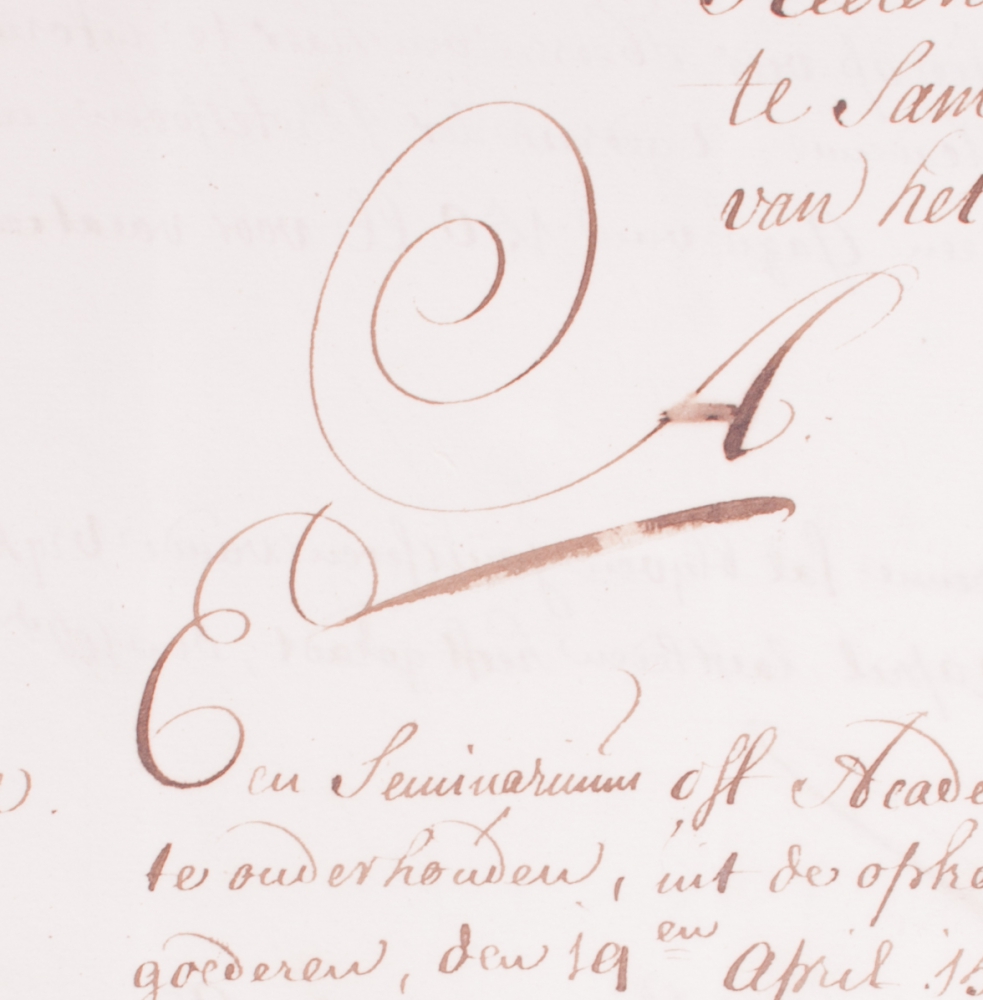 te Sam
van het
A.
Een Seminarium off Acade
te onderhouden, uit de ophe
goederen, den 19en April 15